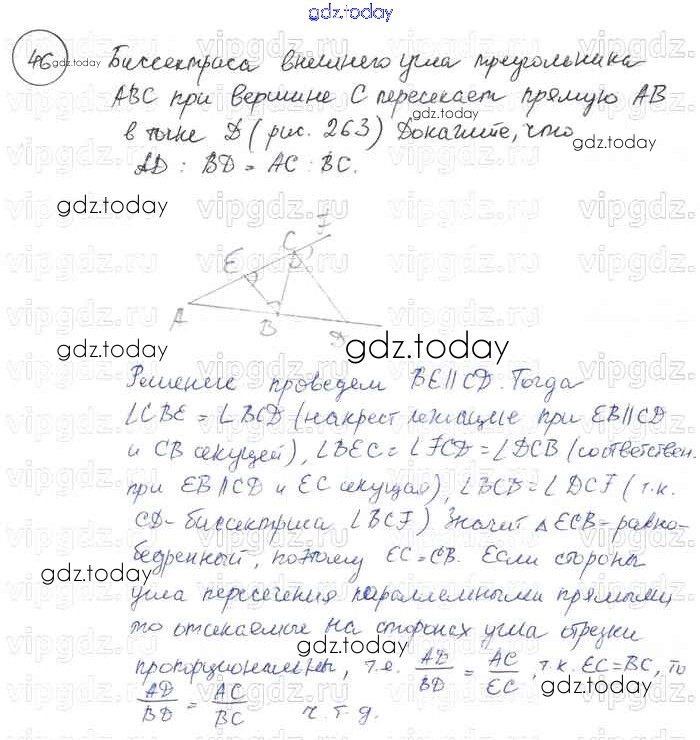 gdz.today
46 Биссектриса внешнего угла треугольника
ABC при вершине C пересекает прямую AB
в точке D (рис. 263) Докажите, что
AD : BD = AC : BC.
gdz.today
gdz.today
E C F
A B D
gdz.today
gdz.today
Решение проведем BE∥CD. Тогда
∠CBE = ∠BCD (накрест лежащие при EB∥CD
и CB секущей), ∠BEC = ∠FCD = ∠DCB (соответствен.
при EB∥CD и EC секущая), ∠BCD = ∠DCF (т.к.
CD - биссектриса ∠BCF) Значит △ECB - равно-
бедренный, поэтому EC = CB. Если стороны
угла пересечения параллельными прямыми
то отсекаемые на сторонах угла отрезки
пропорциональны, т.е. AD/BD = AC/EC, т.к. EC=BC, то
AD/BD = AC/BC ч.т.д.
gdz.today
gdz.today
gdz.today
gdz.today
vipgdz.ru vipgdz.ru vipgdz.ru vipgdz.ru